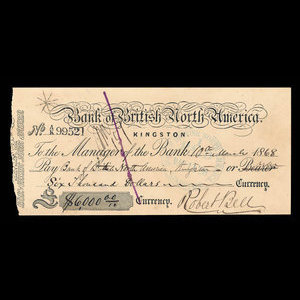 Bank of British North America.
No. A 99521
KINGSTON
To the Manager of the Bank 10th March 1868
Pay Bank of British North America, Kingston or Bearer
Six Thousand Dollars Currency.
$6,000 00/10 Currency. Robert Bell